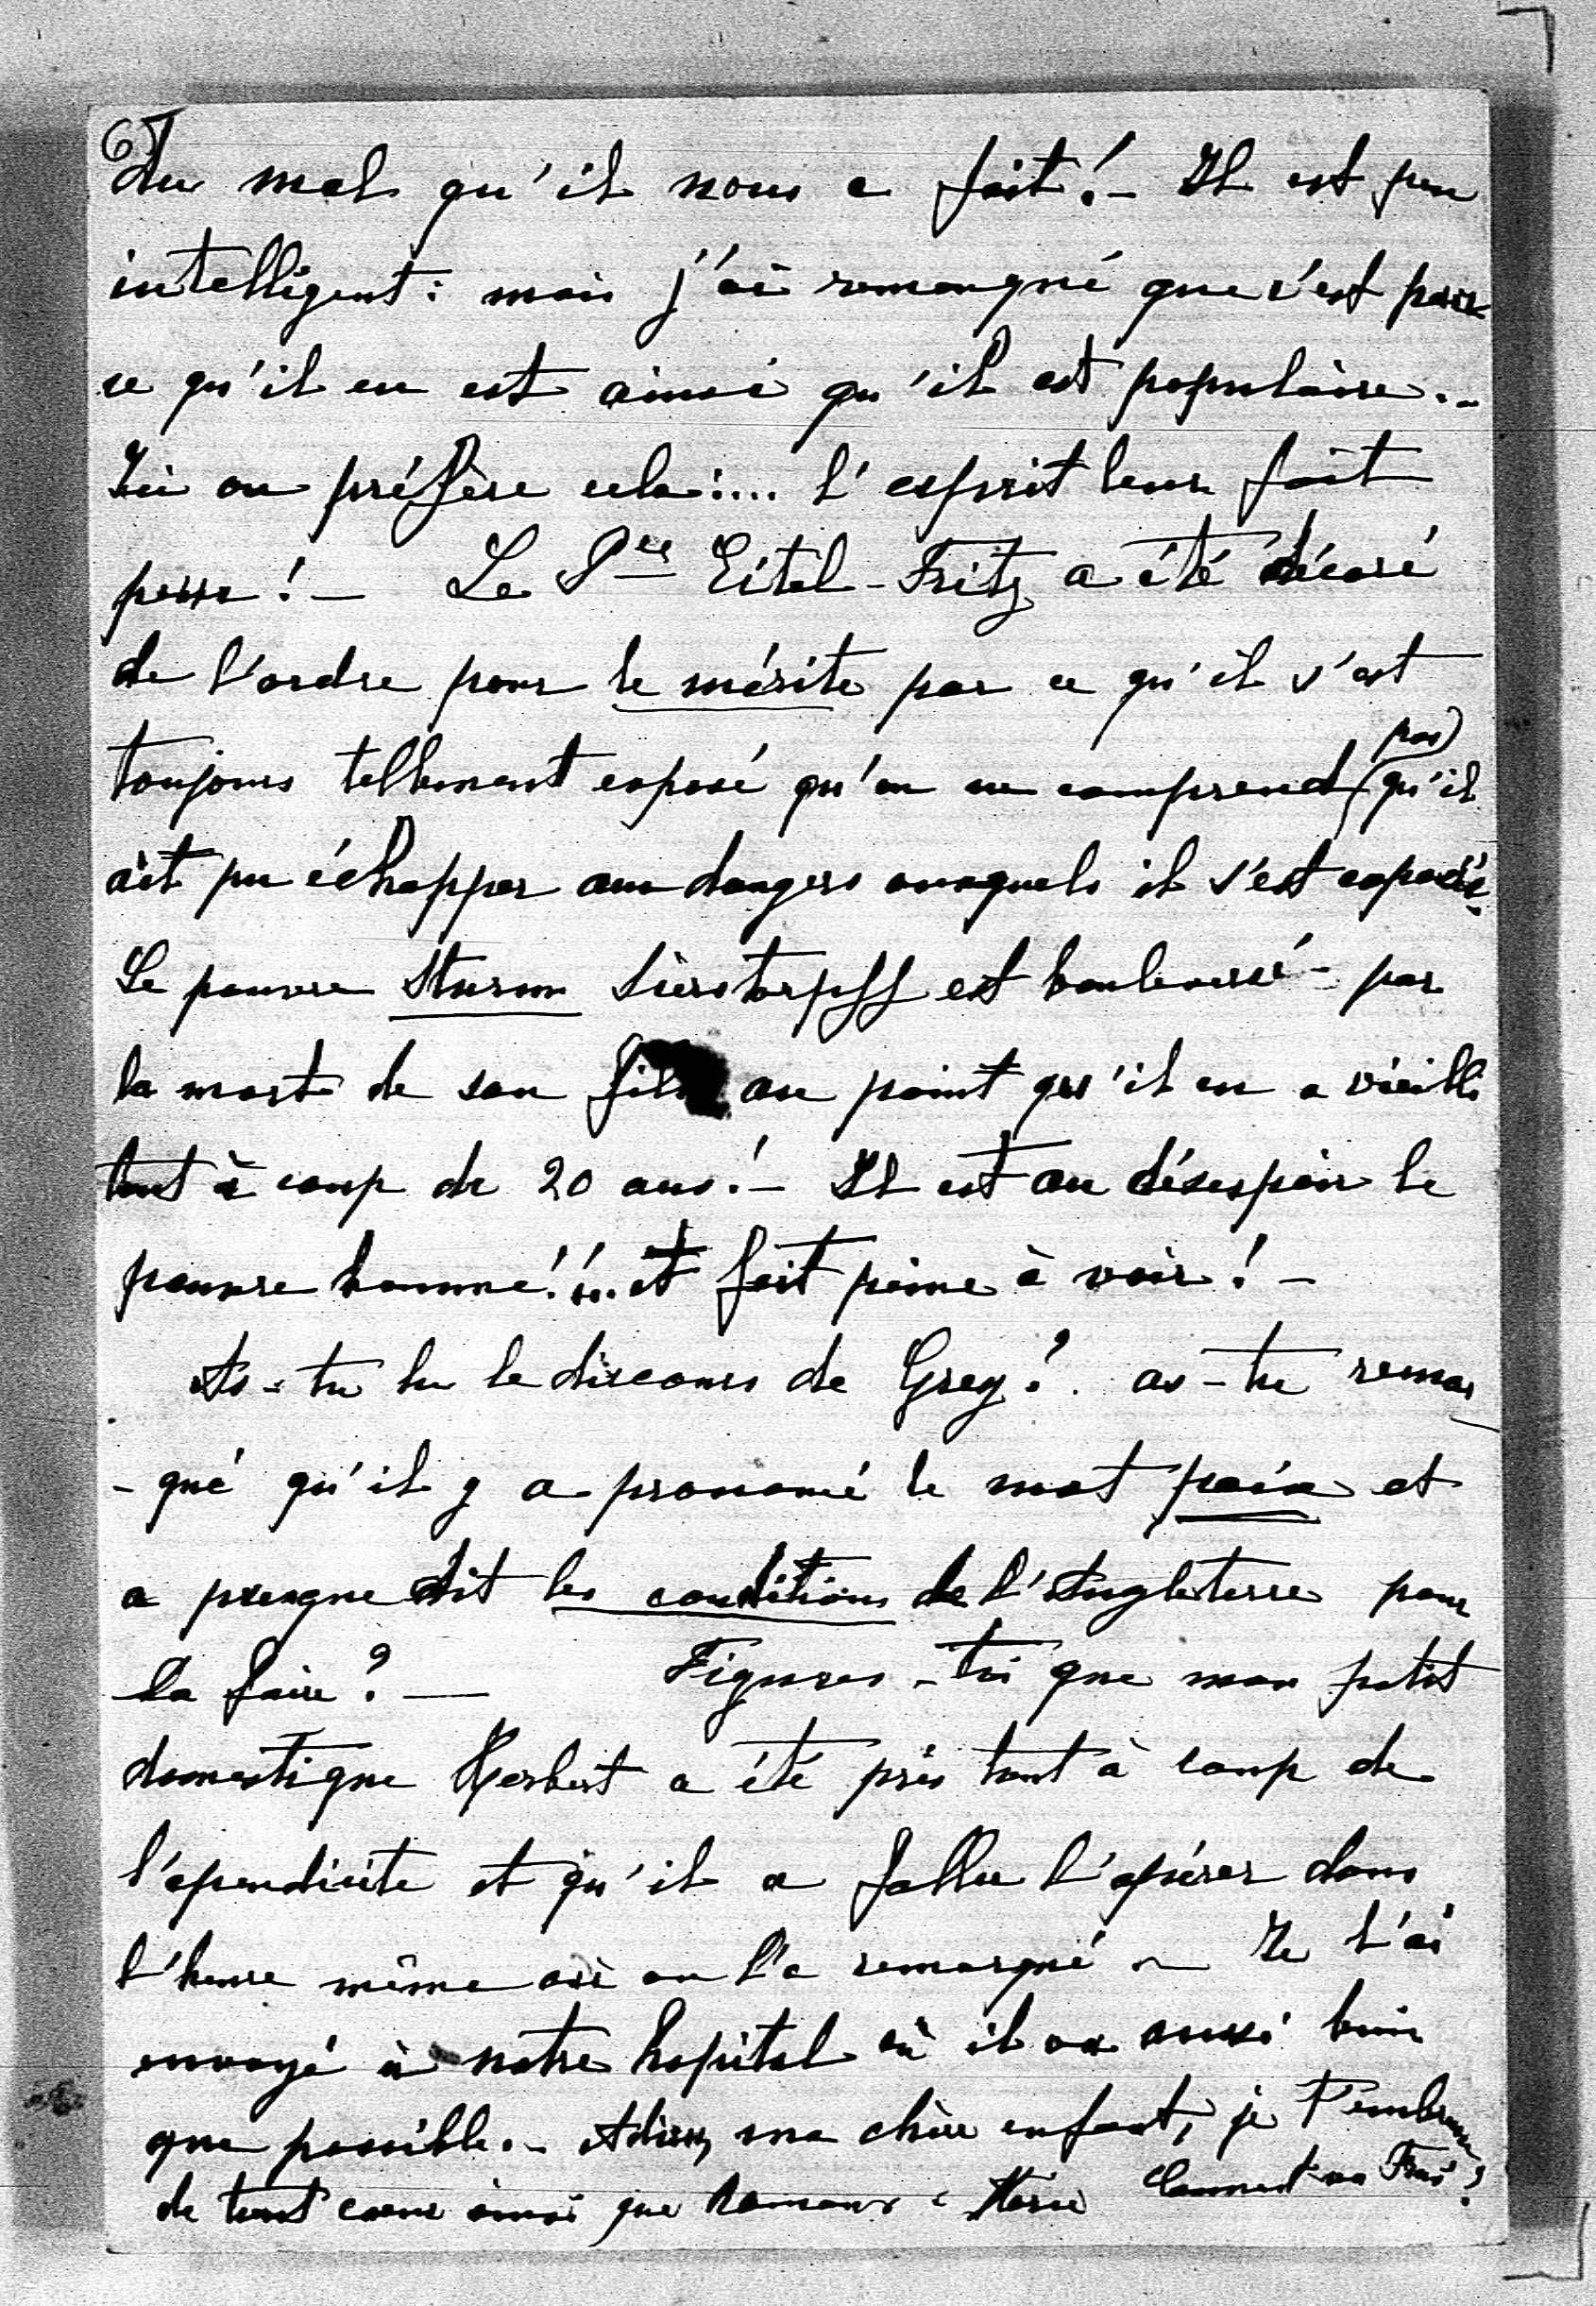 6)
du mal qu'il nous a fait! – Il est peu
intelligent: mais j'ai remarqué que c'est par
ce qu'il en est ainsi qu'il est populaire. –
Ici on préfère cela:.... l'esprit leur fait
peur! – Le Pce Eitel-Fritz a été décoré
de l'ordre pour le mérite par ce qu'il s'est
toujours tellement exposé qu'on ne comprend (pas) qu'il
ait pu échapper aux dangers auxquels il s'est exposé.
Le pauvre Sturm Sierstorpff est bouleversé – par
la mort de son fils au point qu'il en a vieilli
tout à coup de 20 ans! – Il est au désespoir le
pauvre homme!!.. et fait peine à voir! –
As-tu lu le discours de Grey? as-tu remar
-qué qu'il y a prononcé le mot paix et
a presque dit les conditions de l'Angleterre pour
la faire? — Figures-toi que mon petit
domestique Herbert a été pris tout à coup de
l'apendicite et qu'il a fallu l'opérer dans
l'heure même où on l'a remarqué – Je l'ai
envoyé à notre hopital où il va aussi bien
que possible. – Adieu, ma chère enfant, je t'embrasse
de tout coeur ainsi que Marie Comment va